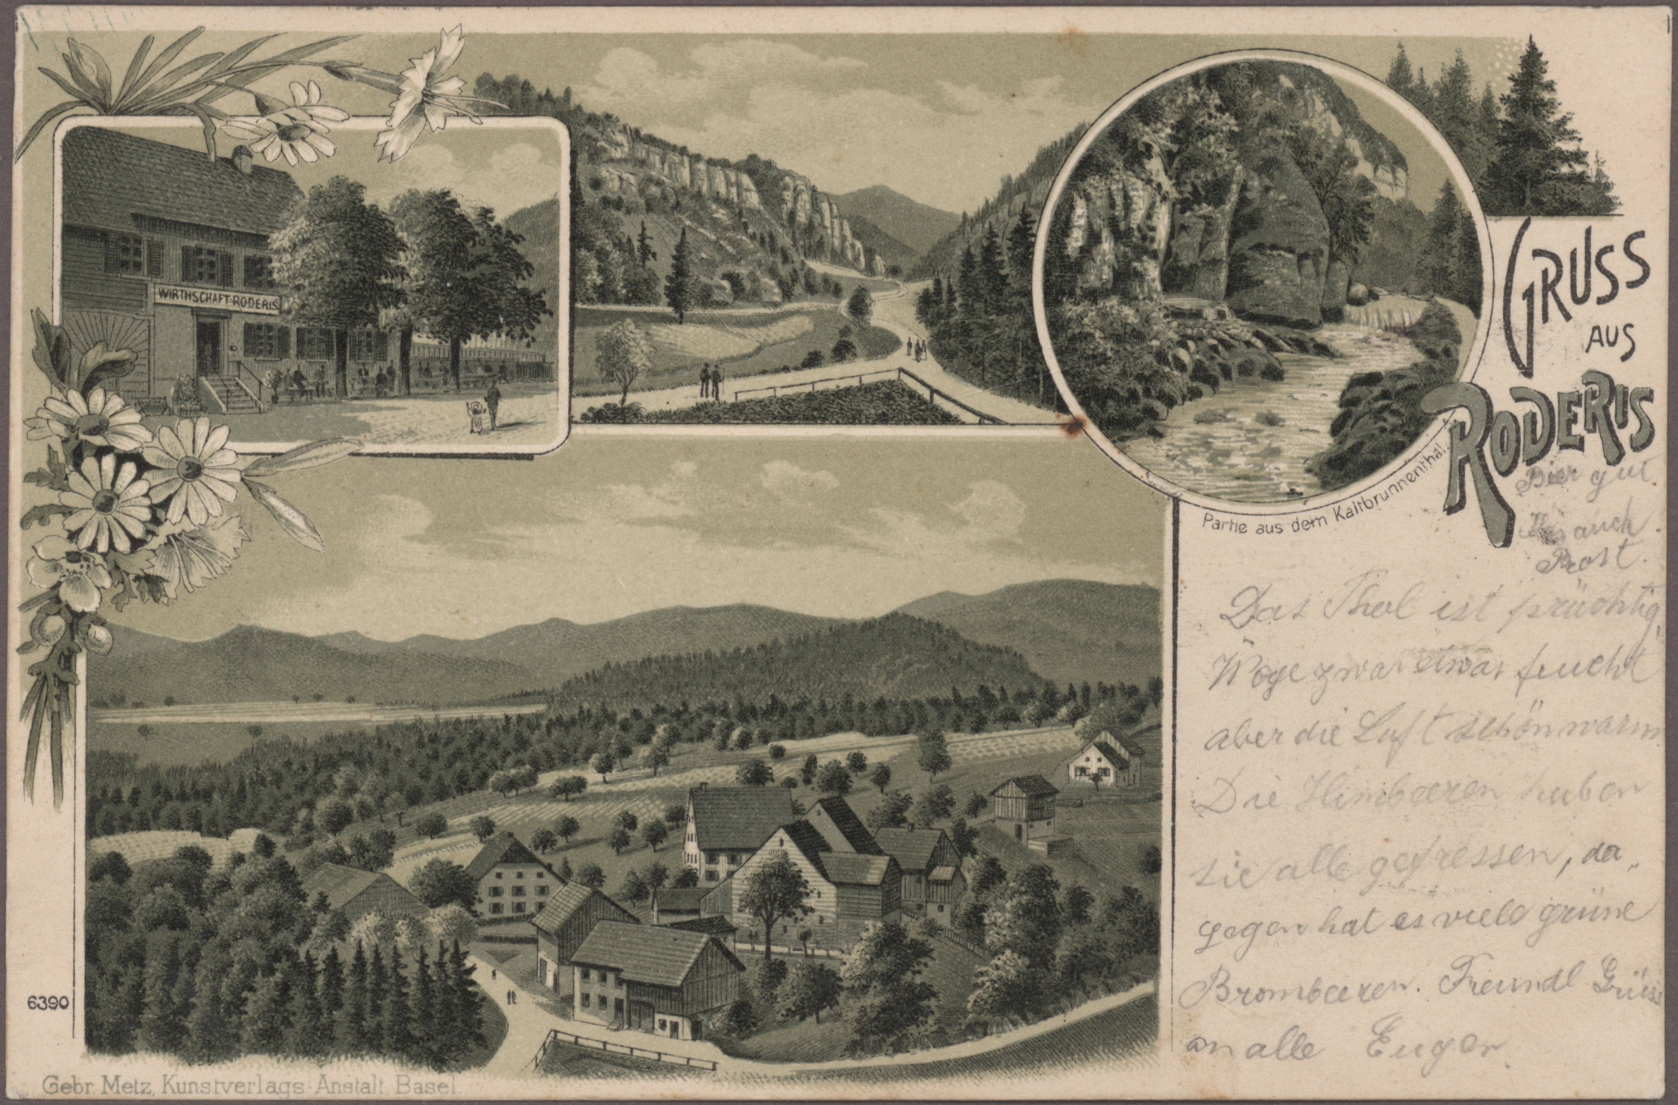 WIRTHSCHAFT RODERIS
GRUSS
AUS
RODERIS
Partie aus dem Kaltbrunnenthal.
Bier gut
auch
Prost.
Das Thal ist prächtig
Wege zwar etwas feucht
aber die Luft schön warm
Die Himbeeren haben
sie alle gefressen, da„
gegen hat es viele grüne
Brombeeren. Freundl. Grüsse
an alle Eugen
6390
Gebr. Metz, Kunstverlags-Anstalt, Basel.